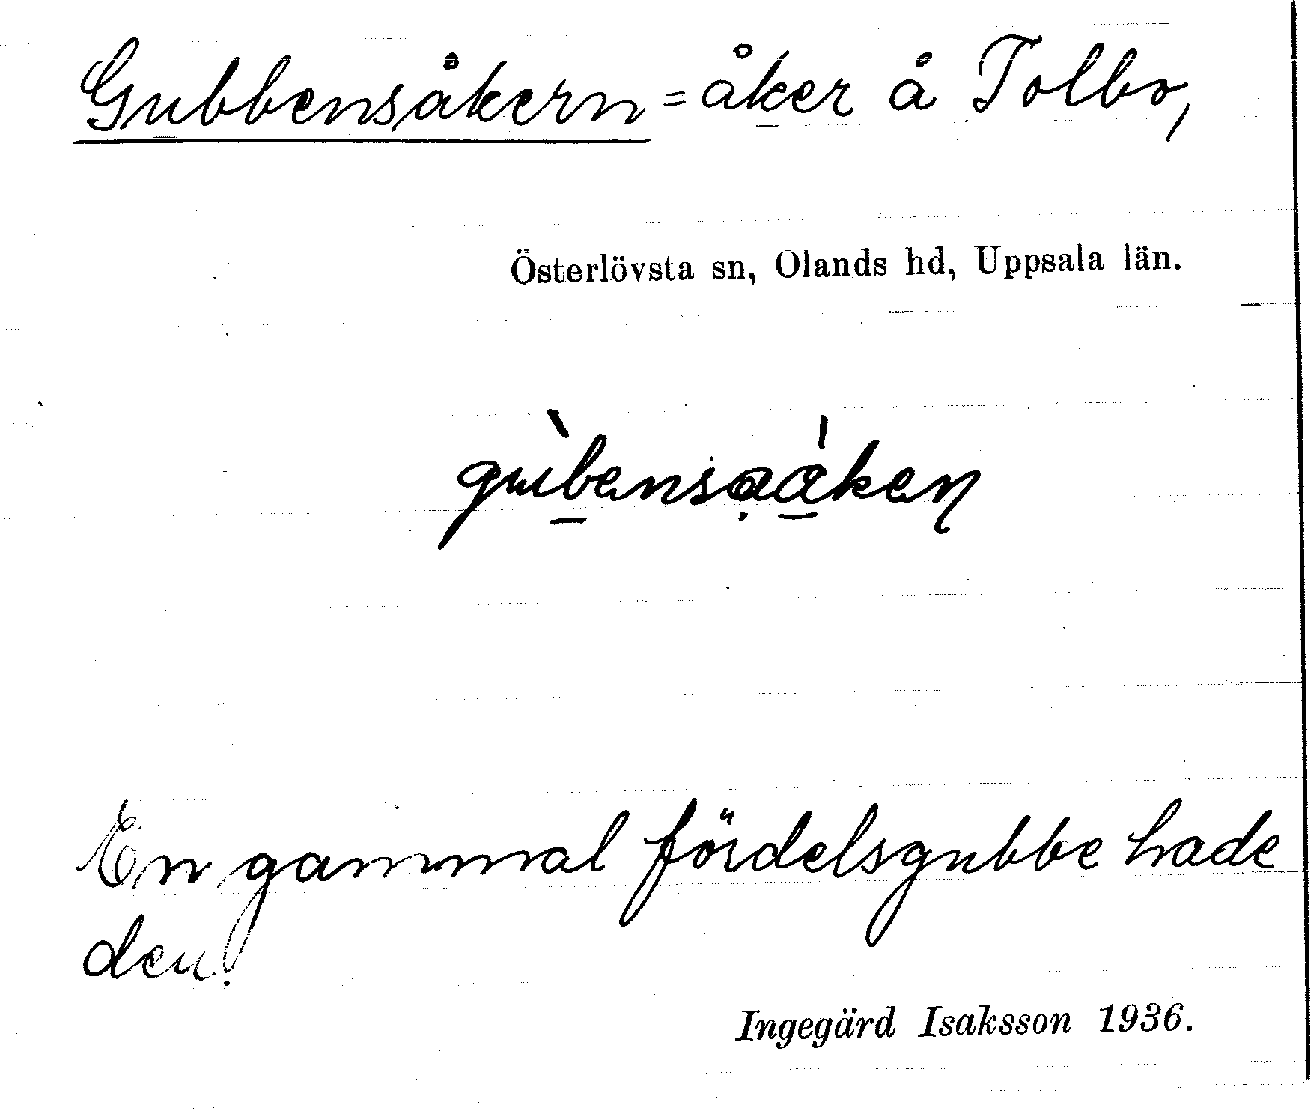 Gubbensåkern = åker å Tolbo,
Österlövsta sn, Olands hd, Uppsala län.
En gammal fördelsgubbe hade
den.
Ingegärd Isaksson 1936.